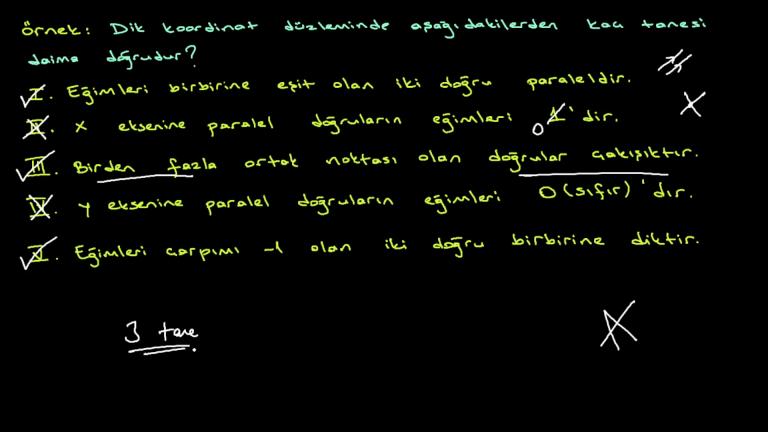 Örnek: Dik koordinat düzleminde aşağıdakilerden kaç tanesi
daima doğrudur?
I. Eğimleri birbirine eşit olan iki doğru paraleldir.
II. x eksenine paralel doğruların eğimleri 1'dir.
0
III. Birden fazla ortak noktası olan doğrular çakışıktır.
IV. y eksenine paralel doğruların eğimleri 0 (sıfır)'dır.
V. Eğimleri çarpımı -1 olan iki doğru birbirine diktir.
3 tane.